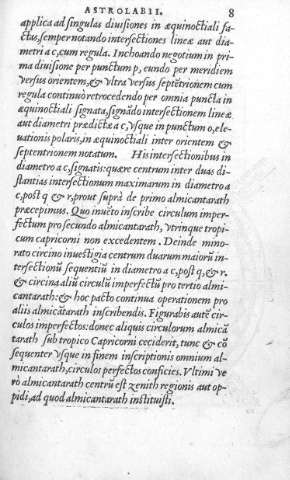 ASTROLABII. 8
applica ad singulas diuisiones in æquinoctiali fa-
ctus, semper notando intersectiones lineæ aut dia-
metri a c, cum regula. Inchoando negotium in pri-
ma diuisione per punctum p, eundo per meridiem
versus orientem, & vltra versus septētrionem cum
regula continuò retrocedendo per omnia puncta in
æquinoctiali signata, signādo intersectionem lineæ
aut diametri prædictæ a c, vsque in punctum o, ele-
uationis polaris, in æquinoctiali inter orientem &
septentrionem notatum. His intersectionibus in
diametro a c, signatis: quære centrum inter duas di-
stantias intersectionum maximarum in diametro a
c, post q & r, prout suprà de primo almicantarath
præcepimus. Quo inuēto inscribe circulum imper-
fectum pro secundo almicantarath, vtrinque tropi-
cum capricorni non excedentem. Deinde mino-
rato circino inuestigia centrum duarum maiorū in-
tersectionū sequentiū in diametro a c, post q, & r.
& circina aliū circulū imperfectū pro tertio almi-
cantarath: & hoc pacto continua operationem pro
aliis almicātarath inscribendis. Figurabis autē cir-
culos imperfectos: donec aliquis circulorum almicā
tarath sub tropico Capricorni ceciderit, tunc & cō
sequenter vsque in finem inscriptionis omnium al-
micantarath, circulos perfectos conficies. Vltimi ve
rò almicantarath centrū est zenith regionis aut op-
pidi, ad quod almicantarath instituisti.